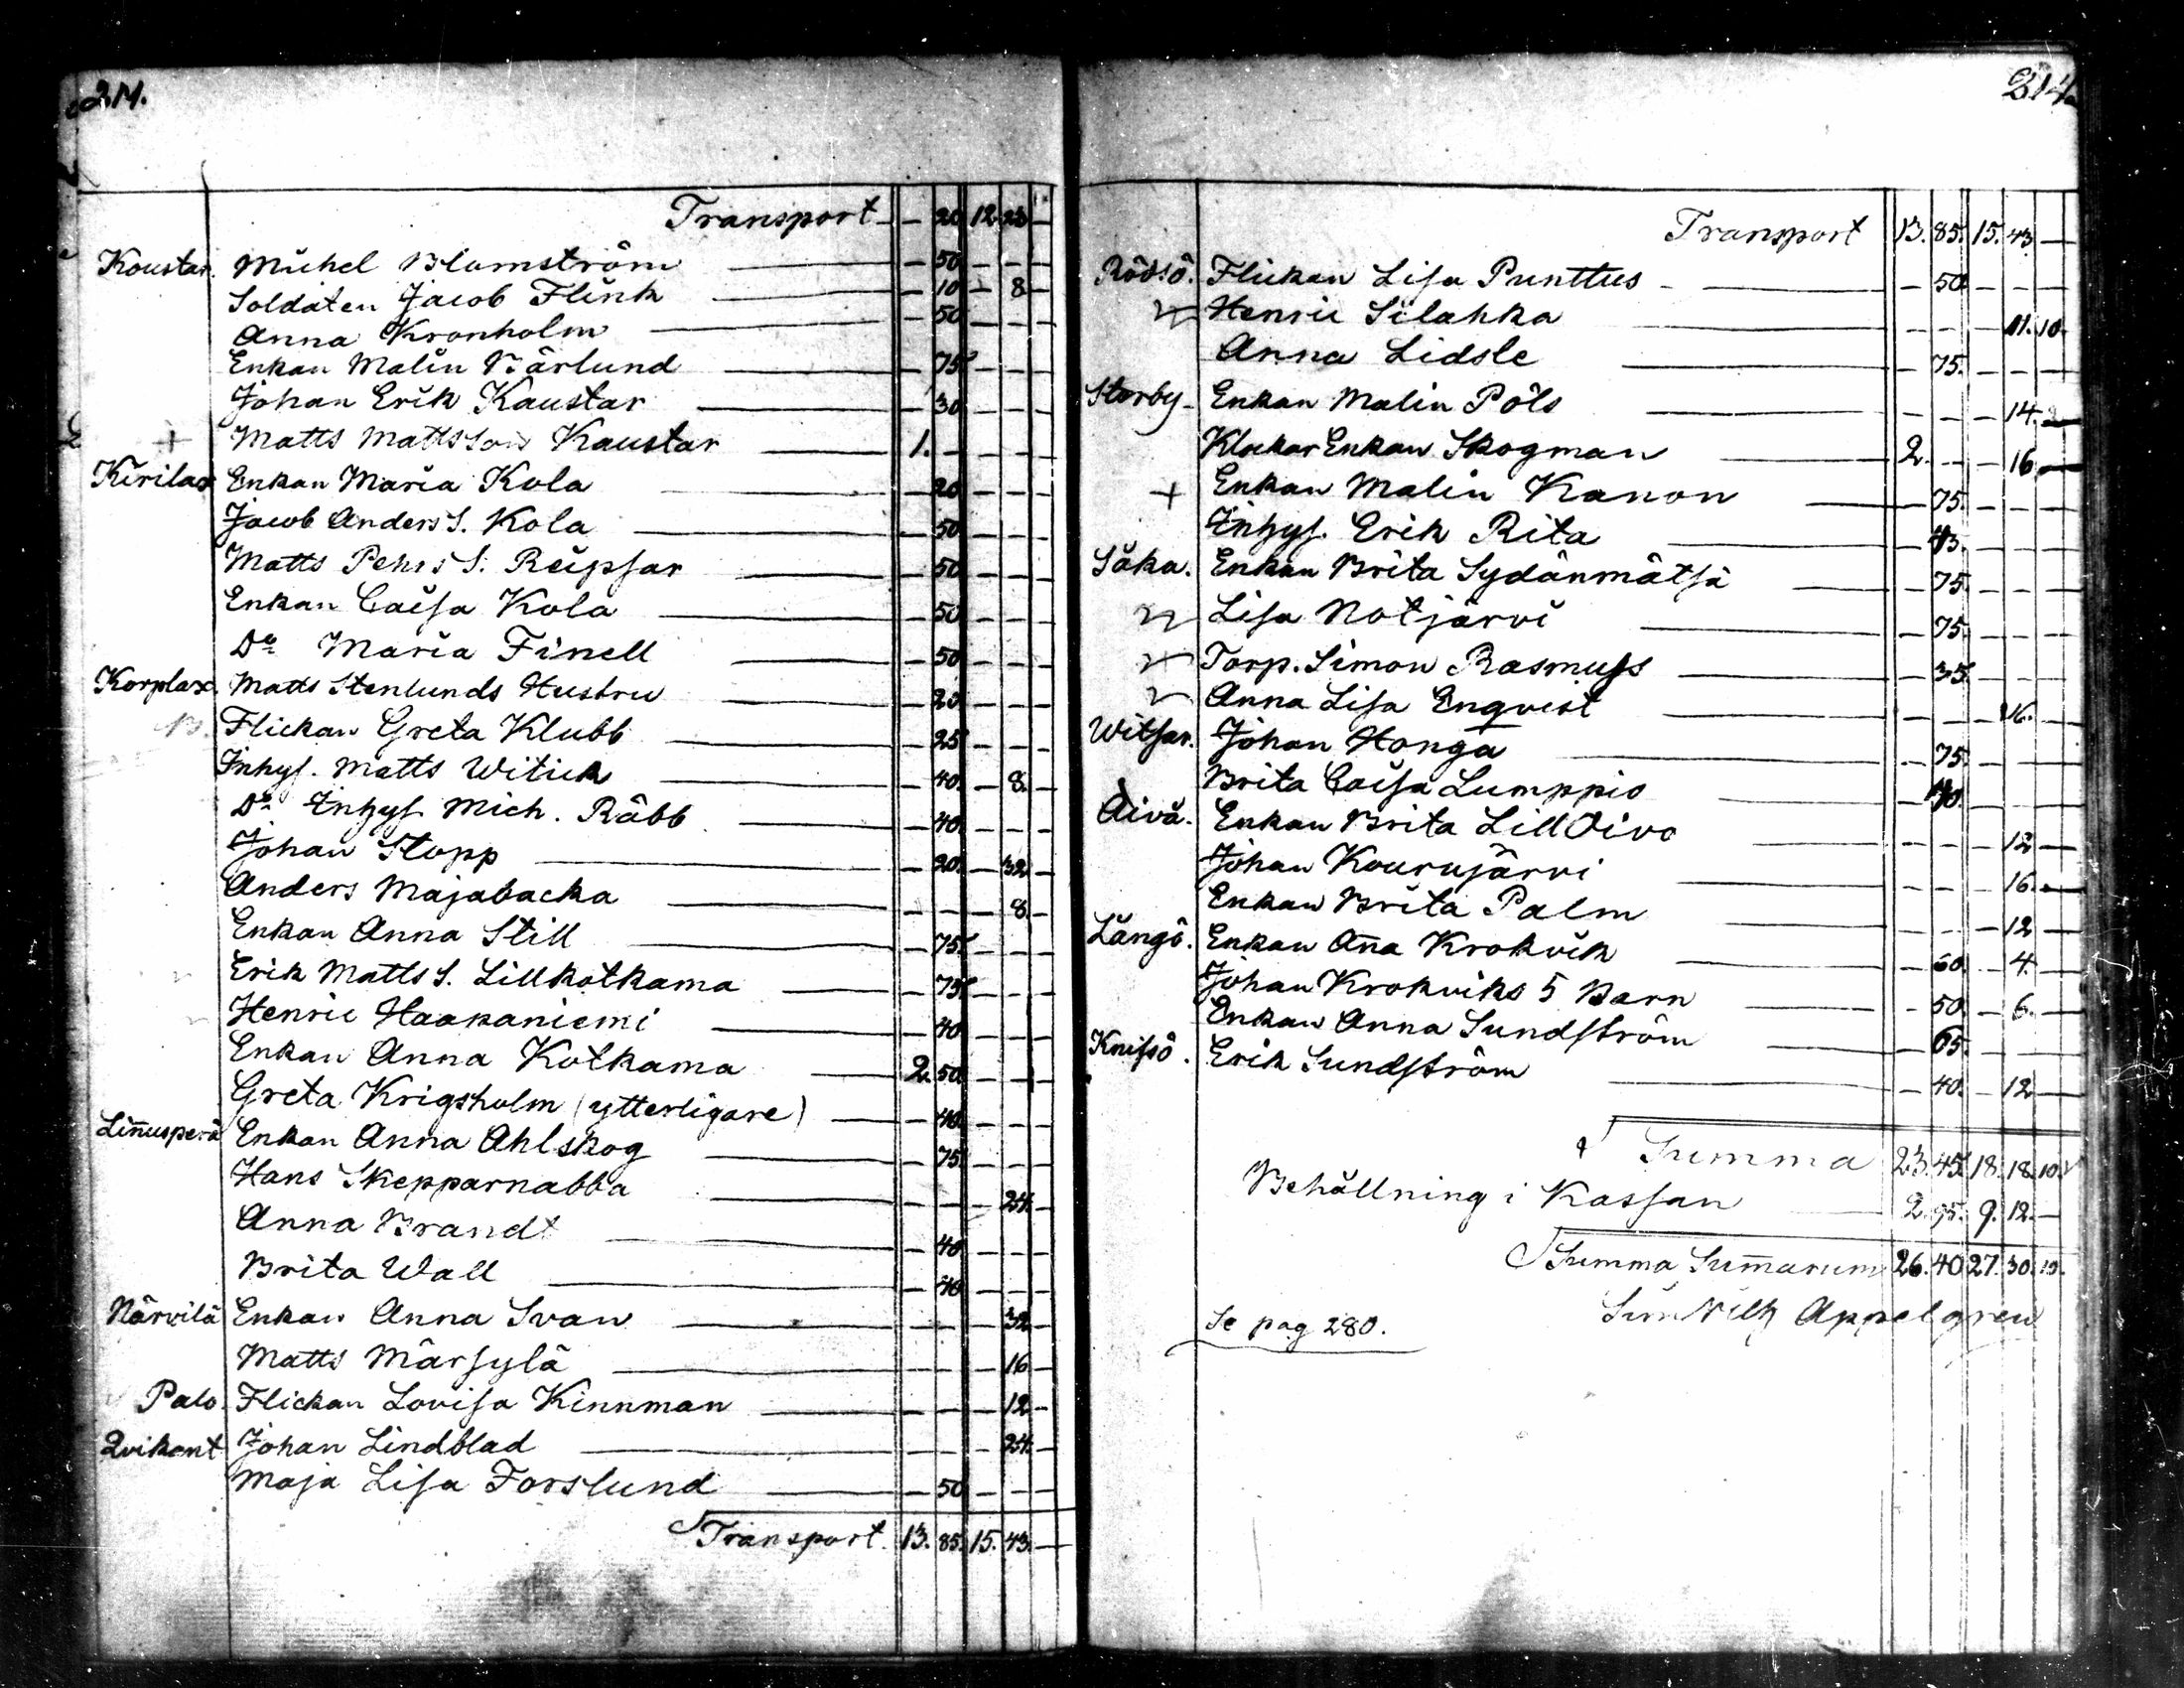 214.
Transport — 20 12 23 —
Koustar. Michel Blomström — 50 — — —
Soldaten Jacob Flink — 10 — 8 —
Anna Kronholm — 50 — — —
Enkan Malin Närlund — 75 — — —
Johan Erik Kaustar — 30 — — —
+ Matts Mattsson Kaustar 1. — — — —
Kirilax Enkan Maria Kola — 20 — — —
Jacob Anders S. Kola — 50 — — —
Matts Pehrs S. Reipsar — 50 — — —
Enkan Caisa Kola — 50 — — —
Do Maria Finell — 50 — — —
Korplax. Matts Stenlunds Hustru — 20 — — —
Flickan Greta Klubb — 25 — — —
Inhys. Matts Witick — 40. — 8. —
Do Inhys. Mich. Räbb — 40 — — —
Johan Stopp — 20. — 32 —
Anders Majabacka — — — 8. —
Enkan Anna Still — 75. — — —
Erik Matts S. Lillkotkama — 75. — — —
Henric Haapaniemi — 40 — — —
Enkan Anna Kotkama 2. 50 — — —
Greta Krigsholm (ytterligare) — 40. — — —
Linnusperä Enkan Anna Ahlskog — 75. — — —
Hans Skepparnabba — — — 24. —
Anna Brandt — 40 — — —
Brita Wall — 40 — — —
Närvilä Enkan Anna Svan — — — 32 —
Matts Märsylä — — — 16 —
Palo. Flickan Lovisa Kinnman — — — 12 —
Qvikant Johan Lindblad — — — 24. —
Maja Lisa Forslund — 50 — — —
Transport. 13. 85. 15. 43. —
214
Transport 13. 85. 15. 43 —
Rödsö. Flickan Lisa Punttus — 50 — — —
Henric Silahka — — — 11. 10.
Anna Lidsle — 75. — — —
Storby. Enkan Malin Pöls — — — 14. —
Klockar Enkan Skogman 2. — — 16 —
+ Enkan Malin Kanon — 75. — — —
Inhys. Erik Rita — — — —
Såka. Enkan Brita Sydänmätsä — 75. — — —
Lisa Notjärvi — 75. — — —
Torp. Simon Rasmuss — 35 — — —
Anna Lisa Enqvist — — — 16. —
Witsar. Johan Honga — 75. — — —
Brita Caisa Lumppio — — — —
Åivå. Enkan Brita Lill Oivo — — — 12 —
Johan Kourujärvi — — — 16. —
Enkan Brita Palm — — — 12 —
Långö. Enkan Anna Krokvik — 60. — 4. —
Johan Krokviks 5 Barn — 50 — 6. —
Enkan Anna Sundström — 65. — — —
Knifsö. Erik Sundström — 40. — 12 —
Summa 23. 45. 18. 18. 10.
Behållning i Kassan 2. 95. 9. 12. —
Summa Summarum 26. 40 27. 30. 10.
Sim Nils Appelgren
Se pag 280.